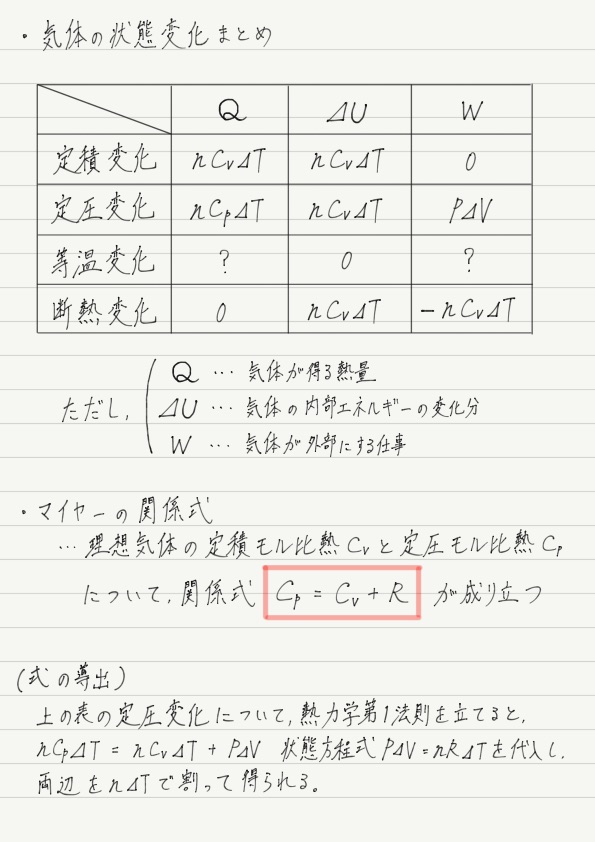 ・気体の状態変化まとめ
Q ΔU W
定積変化 nCvΔT nCvΔT 0
定圧変化 nCpΔT nCvΔT PΔV
等温変化 ? 0 ?
断熱変化 0 nCvΔT -nCvΔT
Q … 気体が得る熱量
ただし, ΔU … 気体の内部エネルギーの変化分
W … 気体が外部にする仕事
・マイヤーの関係式
… 理想気体の定積モル比熱Cvと定圧モル比熱Cp
について, 関係式 Cp = Cv + R が成り立つ
(式の導出)
上の表の定圧変化について, 熱力学第1法則を立てると,
nCpΔT = nCvΔT + PΔV 状態方程式 PΔV=nRΔTを代入し,
両辺をnΔTで割って得られる。